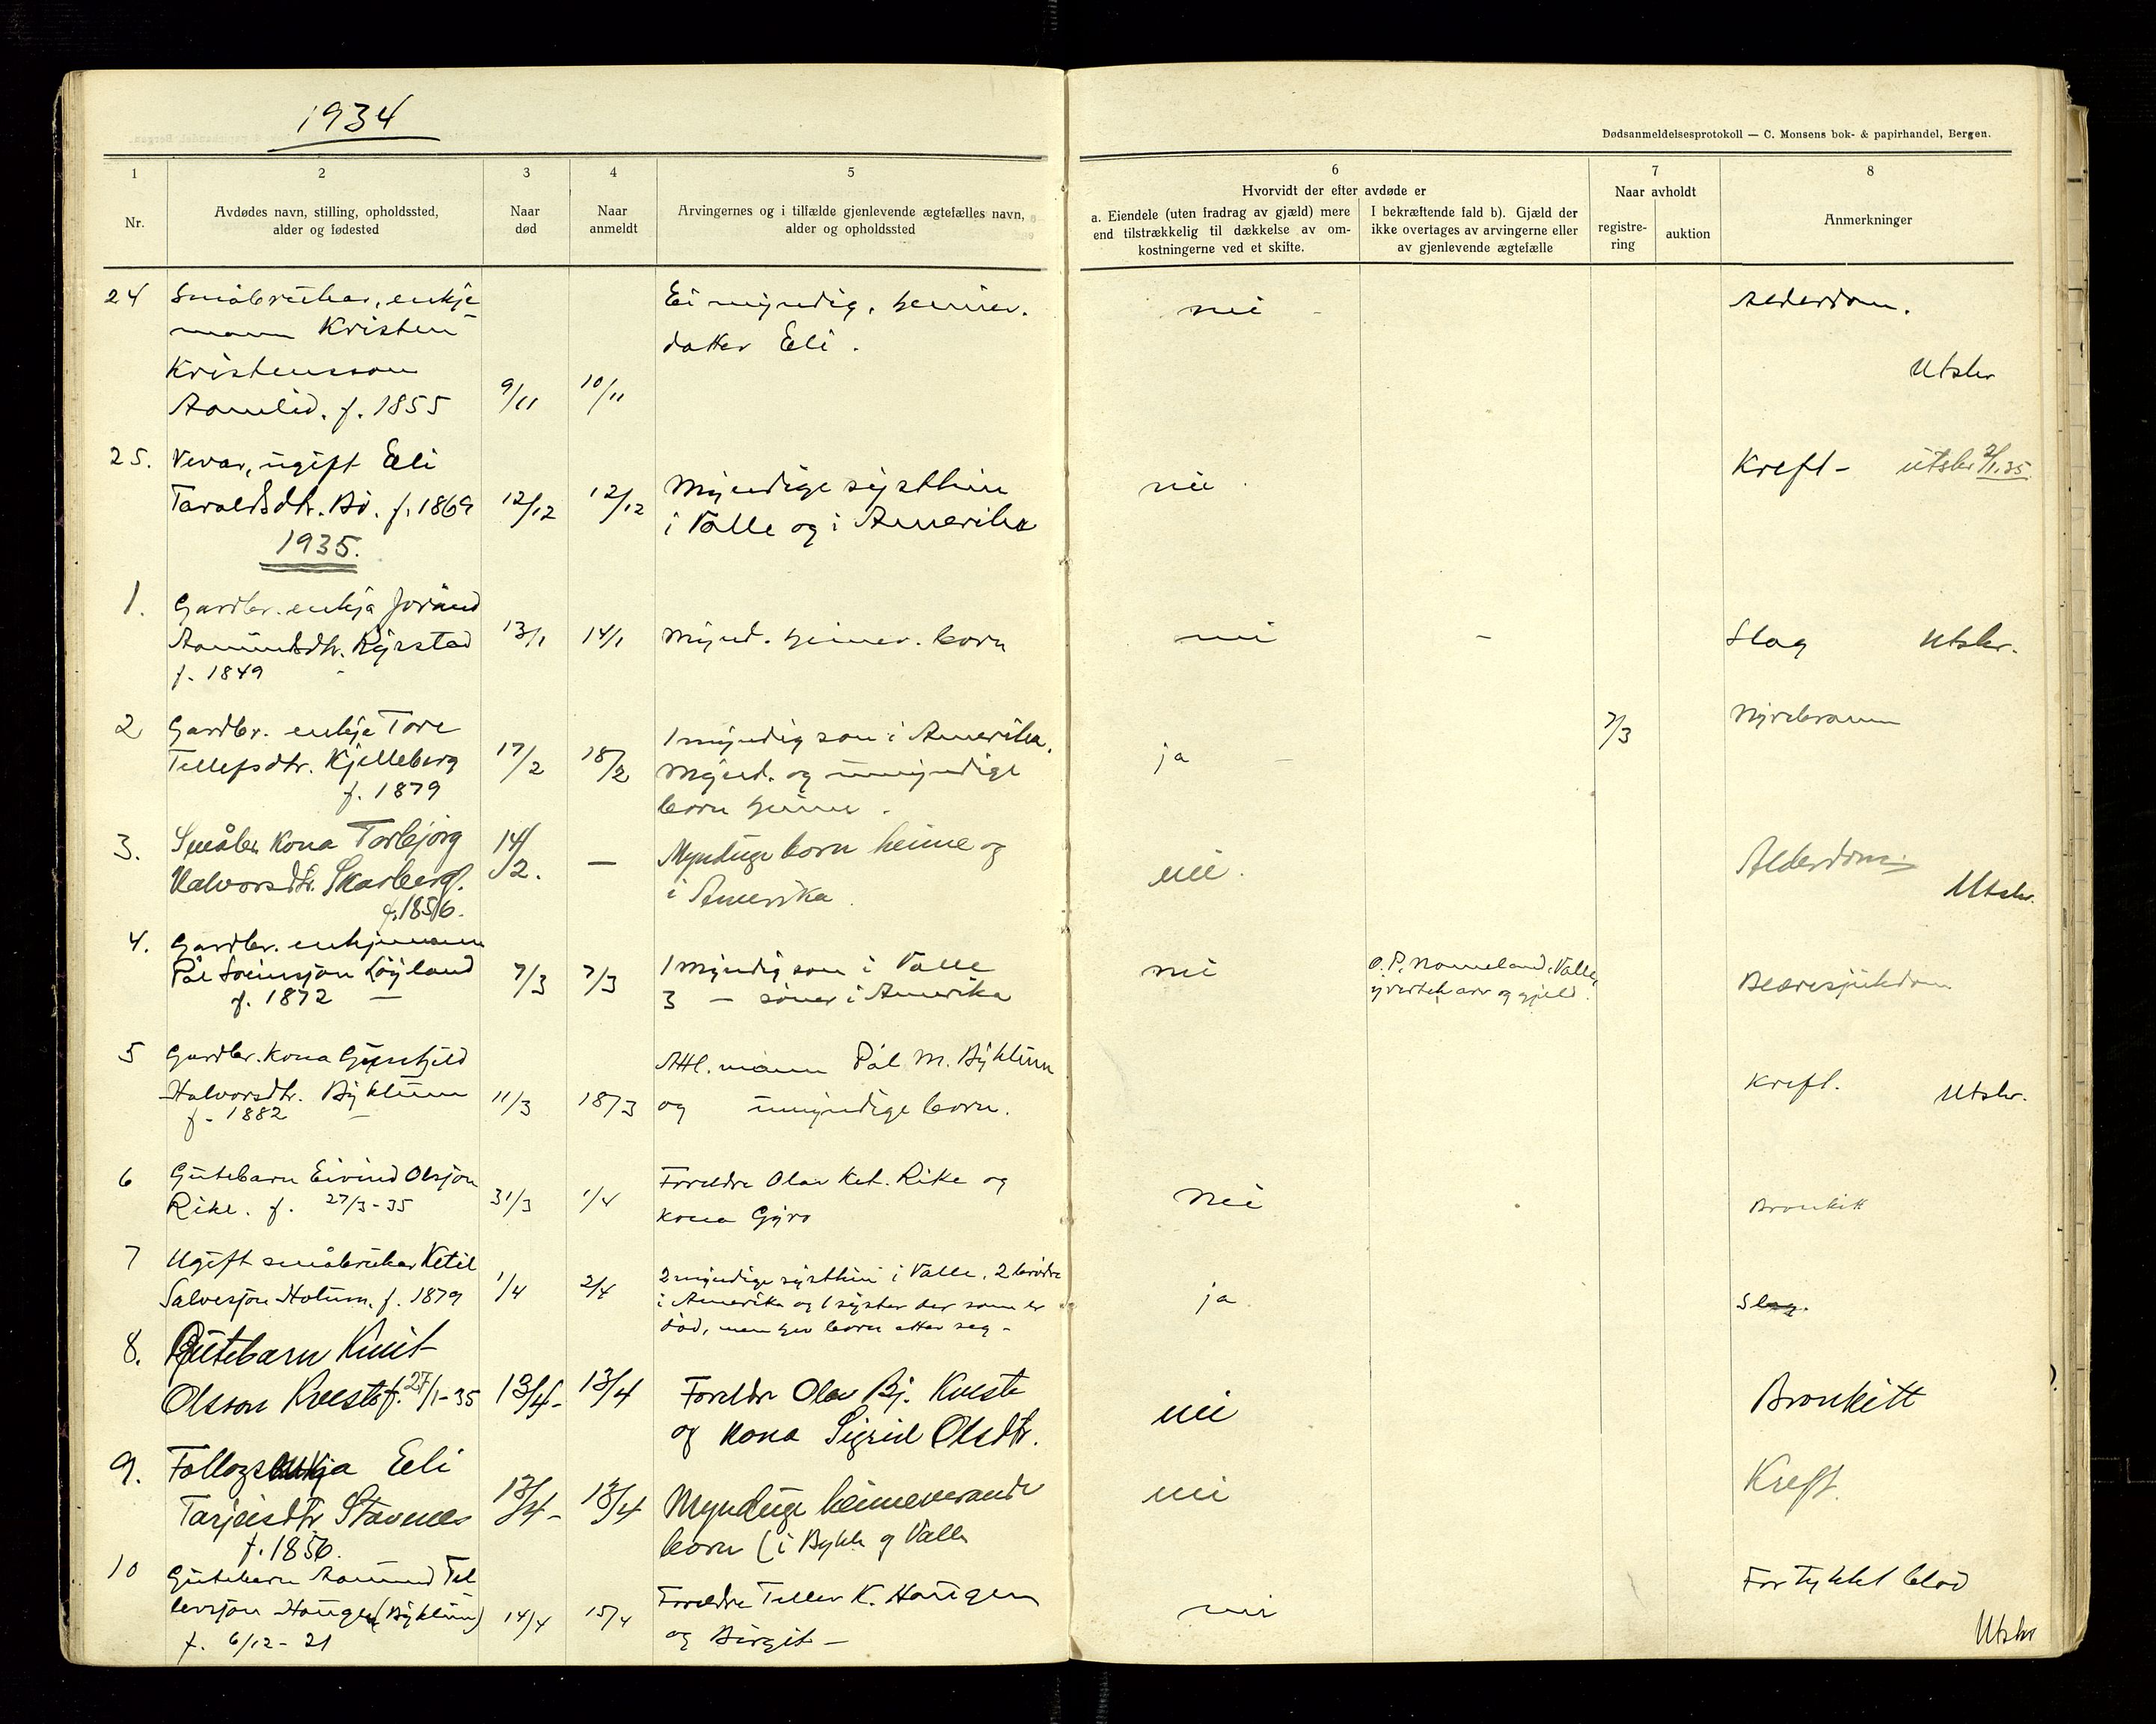 1934
Dødsanmeldelsesprotokoll — C. Monsens bok- & papirhandel, Bergen.
1 2 3 4 5 6 7 8
Nr.
Avdødes navn, stilling, opholdssted,
alder og fødested
Naar
død
Naar
anmeldt
Arvingernes og i tilfælde gjenlevende ægtefælles navn,
alder og opholdssted
Hvorvidt der efter avdøde er
a. Eiendele (uten fradrag av gjæld) mere
end tilstrækkelig til dækkelse av om-
kostningerne ved et skifte.
I bekræftende fald b). Gjæld der
ikke overtages av arvingerne eller
av gjenlevende ægtefælle
Naar avholdt
registre-
ring
auktion
Anmerkninger
24 Småbrukar, enkje
mann Kristen
Kristensson
Aamlid. f. 1855 9/11 10/11
Ei myndig, heimev.
datter Eli.
nei
Alderdom.
Utskr
25. Vevar, ugift Eli
Taraldsdtr. Bø. f. 1869 12/12 12/12
Myndige systkin
i Valle og i Amerika
nei
Kreft - utskr 2/1.35
1935.
1. Gardbr. enkja Jorånd
Aamundsdtr. Rysstad 13/1 14/1 Mynd. heimev. born nei - Slag Utskr.
f. 1849
2 Gardbr. enkje Tore
Tellefsdtr. Kjelleberg 17/2 18/2
f. 1879
1 myndig son i Amerika,
mynd. og umyndige
born heime.
ja - 7/3 Nyrebram
3. Småbr kona Torbjørg 14/2. —
Halvorsdtr. Skarberg.
f. 1856.
Myndige born heime og
i Amerika.
nei.
Alderdom
Utskr.
4. Gardbr. enkjemann
Pål Sveinsjon Løyland 7/3 7/3
f. 1872 —
1 myndig son i Valle
3 — søner i Amerika
nei
O. P. Nomeland, Valle,
yvertek arv og gjeld.
Blæresjukdom
5 Gardbr. kona Gunhild
Halvorsdtr. Byklum 11/3 18/3
f. 1882 —
Attl. mann Pål M. Byklum
og umyndige born.
Kreft. Utskr.
6 Gutebarn Eivind Olsjon
Rike. f. 27/3-35 31/3 1/4
Foreldre Olav Ket. Rike og
kona Gyro
nei
Bronkitt
7 Ugift småbrukar Ketil
Salvesjon Homm. f. 1879 1/4 2/4
2 myndige systkin i Valle, 2 brødre
i Amerika og 1 syster der som er
død, men hev born etter seg -
ja
Slag.
8. Gutebarn Knut
Olsson Kveste f. 27/1-35 13/4- 13/4
Foreldre Olav Bj. Kveste
og kona Sigrid Olsdtr.
nei
Bronkitt
9. Follogsenkja Eli
Tarjeisdtr Stavenes 13/4- 13/4
f. 1856.
Myndige heimeverande
born (i Bykle og Valle
nei
Kreft.
10 Gutebarn Aamund Tel
levsjon Haugen (Byklum) 14/4 15/4
f. 6/12-21
Foreldre Tellev K. Haugen
og Birgit —
nei
For tykkt blod
Utskr